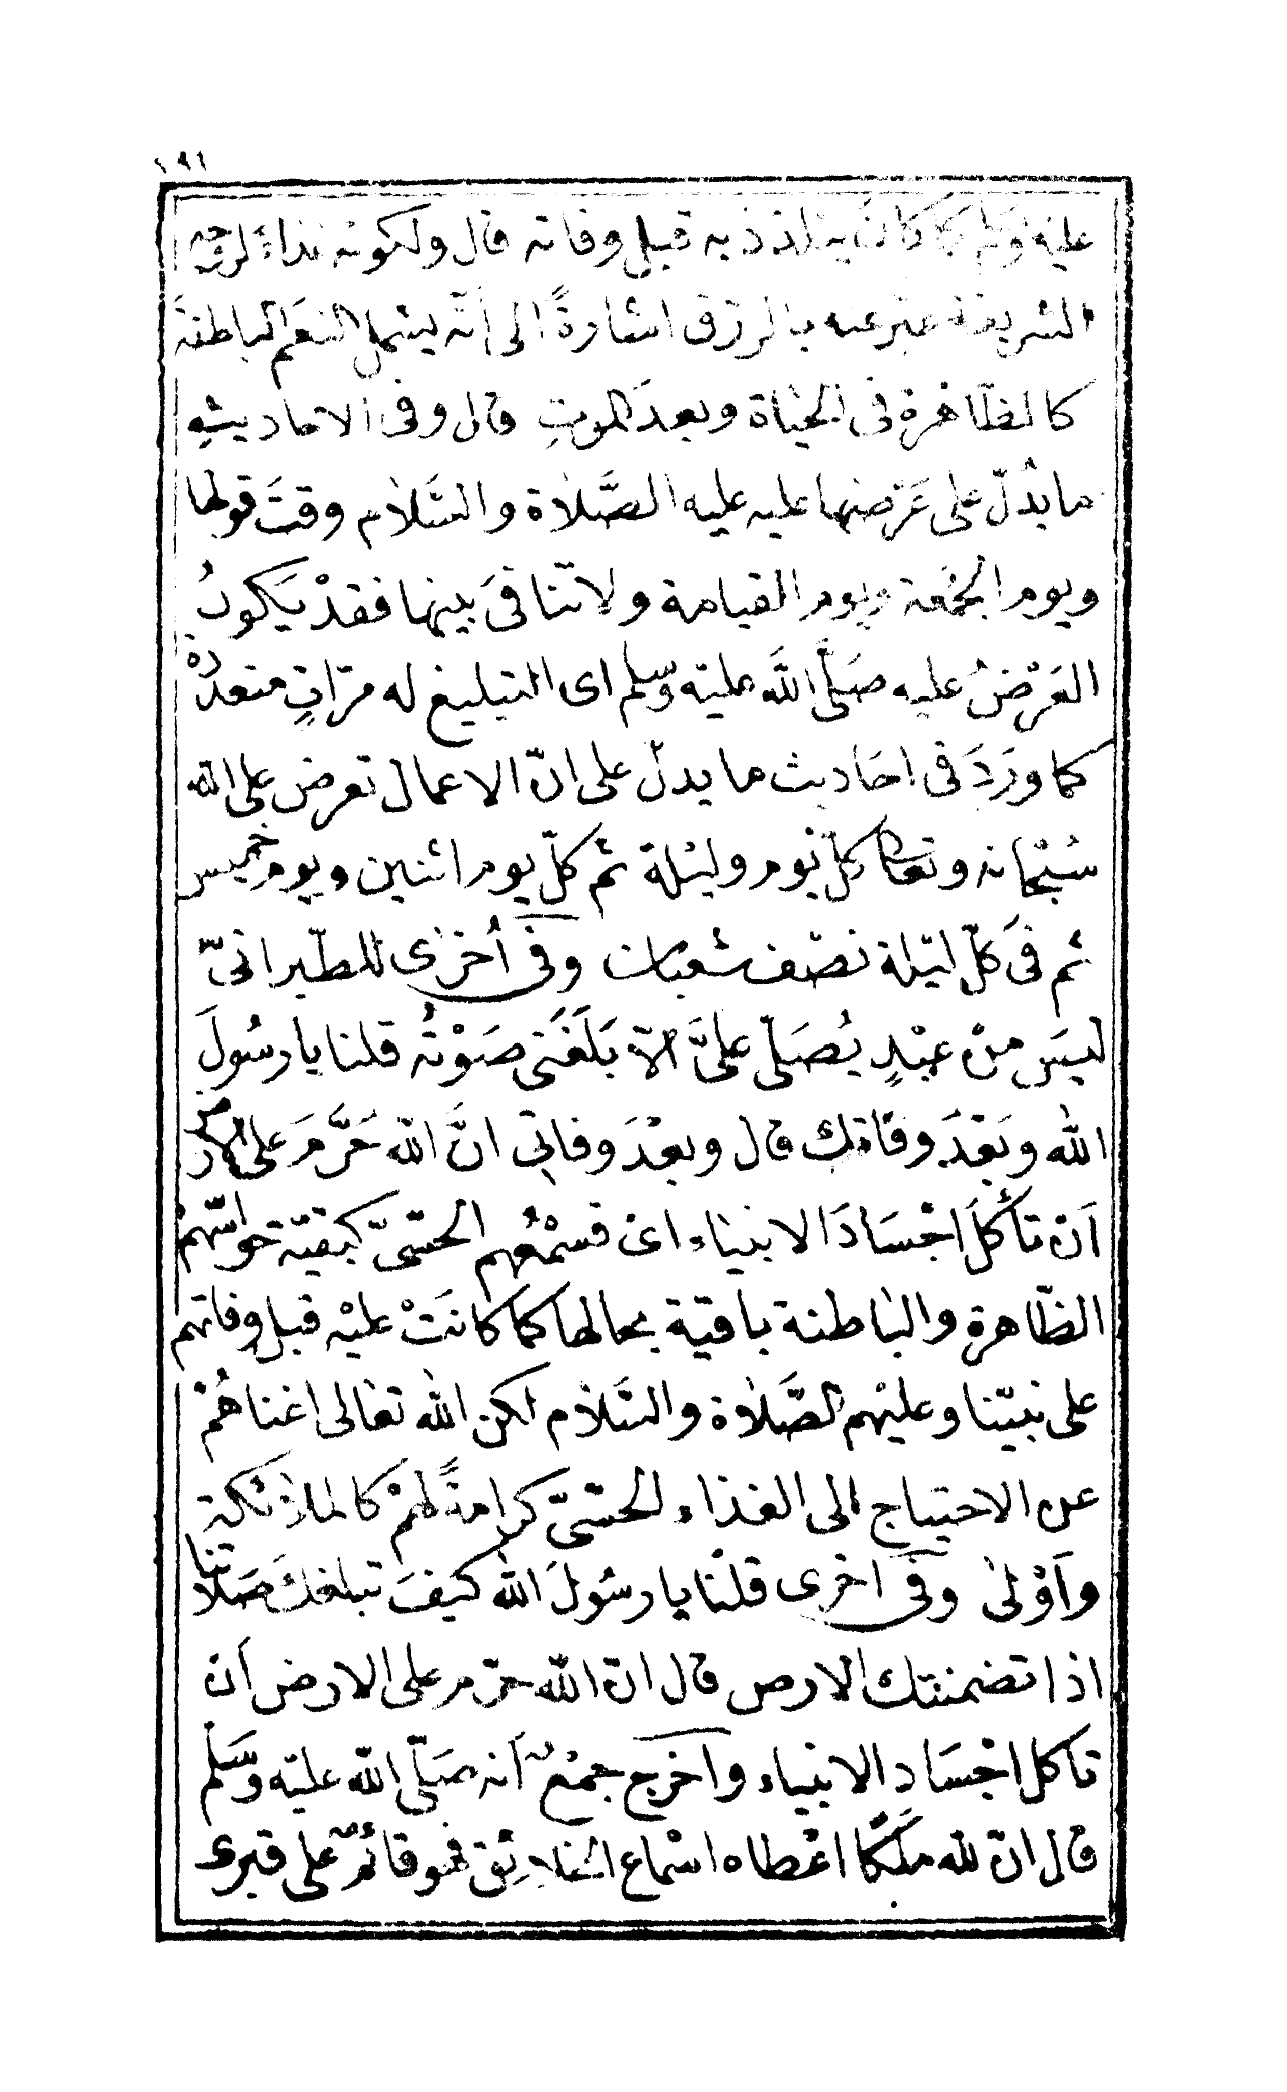 ١٩١
عليه وسلم بما كان يتلذذ به قبل وفاته قال ولكونه غذاءً لروحه
الشريفة عبّر عنه بالرزق اشارةً الى أنّه يشمل النعَم الباطنةَ
كالظّاهرة فى الحيٰاة وبعدَ الموتِ قال وفى الاحاديثِ
ما يدُلّ على عَرْضها عليه عليه الصَّلاٰة والسَّلاٰم وقتَ قولها
ويوم الجُمُعة ويوم القيامة ولا تنافىَ بينها فقدْ يَكونُ
العَرْضُ عليه صَلّى اللّٰه عليْه وسّلم اى التبليغ له مرّاتٍ متعددة
كما ورَدَ فى احَاديث ما يدلّ على انّ الاعمال تعرض على الله
سُبْحانه وتعالى كلّ يوم وليْلة ثم كلّ يوم اثنين ويوم خميس
ثم فىَ كلّ ليْلة نصْف شعبٰان وفى أخرٰى للطّبرانىّ
ليسَ منْ عبْدٍ يُصَلّى علىَّ الّا بَلَغَنى صَوْتُه قلنا يا رسُولَ
اللّٰه وبَعْدَ وفاتك قال وبعْدَ وفاتى انَّ اللّٰه حَرَّمَ على الارض
اَنْ تأكلَ اجْسَادَ الانبيٰاء اىْ فسمْعُهم الحسّىّ كبقيّة حواسّهمْ
الظّاهرة والبٰاطنة باقية بحالها كما كانَتْ عليْه قبل وفاتهم
على نبيّنا وعليْهم الصَّلاٰة والسَّلاٰم لكن اللّٰه تعٰالى اغناهُمْ
عن الاحتياج الى الغذاء الحسّىّ كرامةً لهمْ كالملاٰئكة
واَوْلىٰ وفى اخرى قلْنا يا رسُولَ اللّٰه كيفَ تبلغك صَلاتنا
اذا تضمنتك الارض قال انّ اللّٰه حرّم على الارض اَن
تأكل اجْسَاد الانبيٰاء وَاخرج جمْعٌ اَنه صَلّى اللّٰه عليْه وسَّلم
قال انّ للّٰه ملَكًا اعْطاه اسْماع الخلاٰئق فهو قائمٌ على قبرى